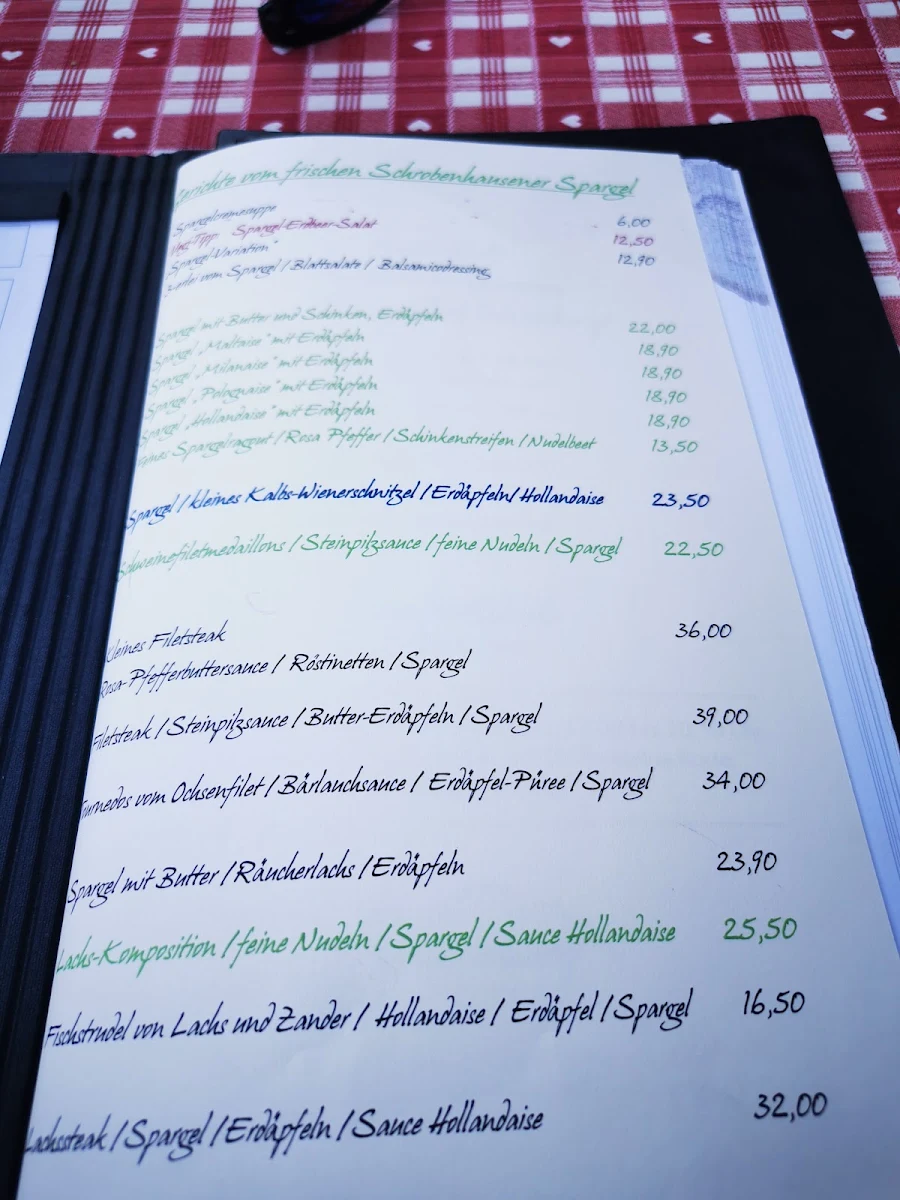 Gerichte vom frischen Schrobenhausener Spargel
Spargelcremesuppe 6,00
Veg-Tipp Spargel-Erdbeer-Salat 12,50
Spargel-Variation" 12,90
vom Spargel / Blattsalate / Balsamicodressing
Spargel mit Butter und Schinken, Erdäpfeln 22,00
Spargel „Maltaise" mit Erdäpfeln 18,90
Spargel „Milanaise" mit Erdäpfeln 18,90
Spargel „Polognaise" mit Erdäpfeln 18,90
Spargel „Hollandaise" mit Erdäpfeln 18,90
Spargelragout / Rosa Pfeffer / Schinkenstreifen / Nudelbeet 13,50
Spargel / kleines Kalbs-Wienerschnitzel / Erdäpfeln/ Hollandaise 23,50
Schweinefiletmedaillons / Steinpilzsauce / feine Nudeln / Spargel 22,50
Kleines Filetsteak 36,00
Rosa-Pfefferbuttersauce / Röstinetten / Spargel
Filetsteak / Steinpilzsauce / Butter-Erdäpfeln / Spargel 39,00
Tournedos vom Ochsenfilet / Bärlauchsauce / Erdäpfel-Püree / Spargel 34,00
Spargel mit Butter / Räucherlachs / Erdäpfeln 23,90
Lachs-Komposition / feine Nudeln / Spargel / Sauce Hollandaise 25,50
Fischstrudel von Lachs und Zander / Hollandaise / Erdäpfel / Spargel 16,50
Lachssteak / Spargel / Erdäpfeln / Sauce Hollandaise 32,00